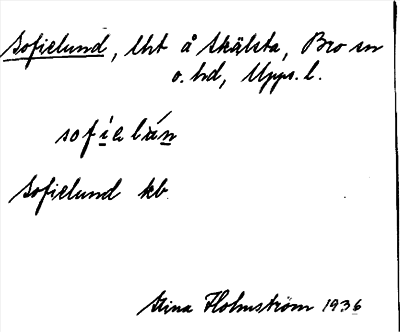 Sofielund, lht å Skälsta, Bro sn
o. hd, Upps. l.
sofielán
Sofielund kb
Stina Holmström 1936